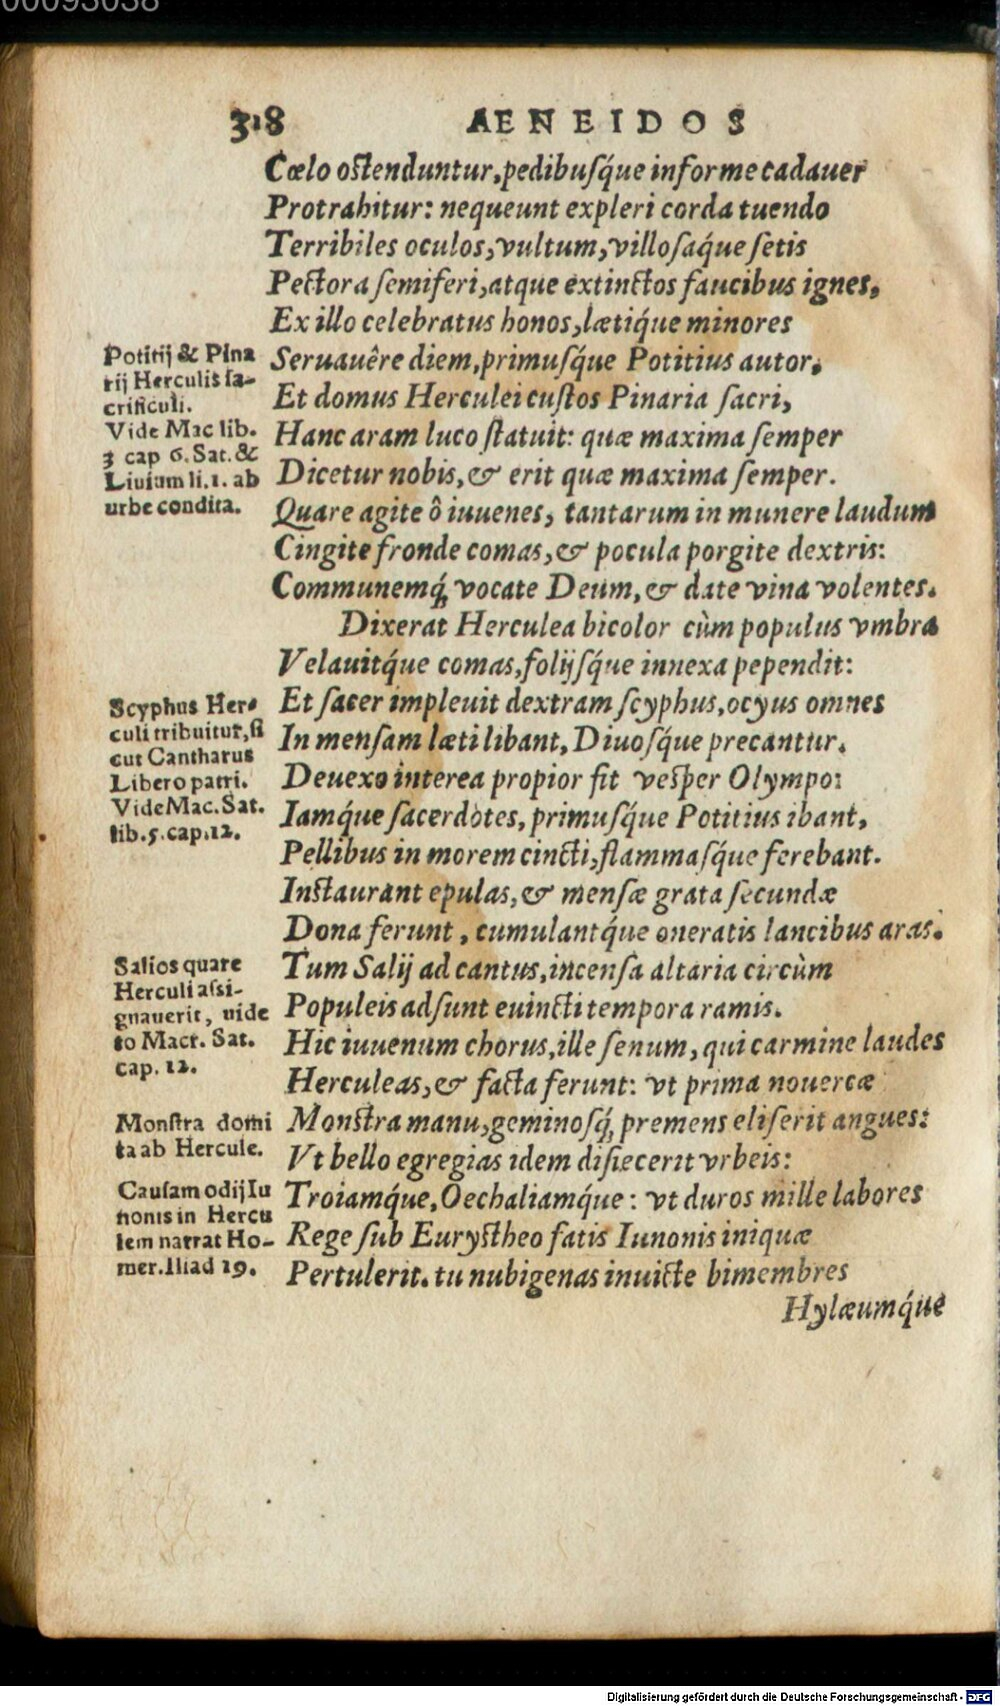 00093038
318
AENEIDOS
Cælo oſtenduntur, pedibuſq́ue informe cadauer
Protrahitur: nequeunt expleri corda tuendo
Terribiles oculos, vultum, villoſaq́ue ſetis
Pectora ſemiferi, atque extinctos faucibus ignes,
Ex illo celebratus honos, lætiq́ue minores
Seruauêre diem, primuſq́ue Potitius autor,
Et domus Herculei cuſtos Pinaria ſacri,
Hanc aram luco ſtatuit: quæ maxima ſemper
Dicetur nobis, & erit quæ maxima ſemper.
Quare agite ô iuuenes, tantarum in munere laudum
Cingite fronde comas, & pocula porgite dextris:
Communemq́; vocate Deum, & date vina volentes.
Dixerat Herculea bicolor cùm populus vmbra
Velauitq́ue comas, folijſq́ue innexa pependit:
Et ſacer impleuit dextram ſcyphus, ocyus omnes
In menſam læti libant, Diuoſq́ue precantur.
Deuexo interea propior fit veſper Olympo:
Iamq́ue ſacerdotes, primuſq́ue Potitius ibant,
Pellibus in morem cincti, flammaſq́ue ferebant.
Inſtaurant epulas, & menſæ grata ſecundæ
Dona ferunt, cumulantq́ue oneratis lancibus aras.
Tum Salij ad cantus, incenſa altaria circùm
Populeis adſunt euincti tempora ramis.
Hic iuuenum chorus, ille ſenum, qui carmine laudes
Herculeas, & facta ferunt: vt prima nouercæ
Monſtra manu, geminoſq́; premens eliſerit angues:
Vt bello egregias idem diſiecerit vrbeis:
Troiamq́ue, Oechaliamq́ue: vt duros mille labores
Rege ſub Euryſtheo fatis Iunonis iniquæ
Pertulerit. tu nubigenas inuicte bimembres
Hylæumq́ue
Potitij & Pina
rij Herculis ſa-
crificuli.
Vide Mac lib.
3 cap 6. Sat. &
Liuium li. 1. ab
urbe condita.
Scyphus Her-
culi tribuitur, ſi
cut Cantharus
Libero patri.
Vide Mac. Sat.
lib. 5. cap. 12.
Salios quare
Herculi aſsi-
gnauerit, uide
to Macr. Sat.
cap. 12.
Monſtra domi
ta ab Hercule.
Cauſam odij Iu
nonis in Hercu
lem narrat Ho-
mer. Iliad 19.
Digitalisierung gefördert durch die Deutsche Forschungsgemeinschaft - DFG